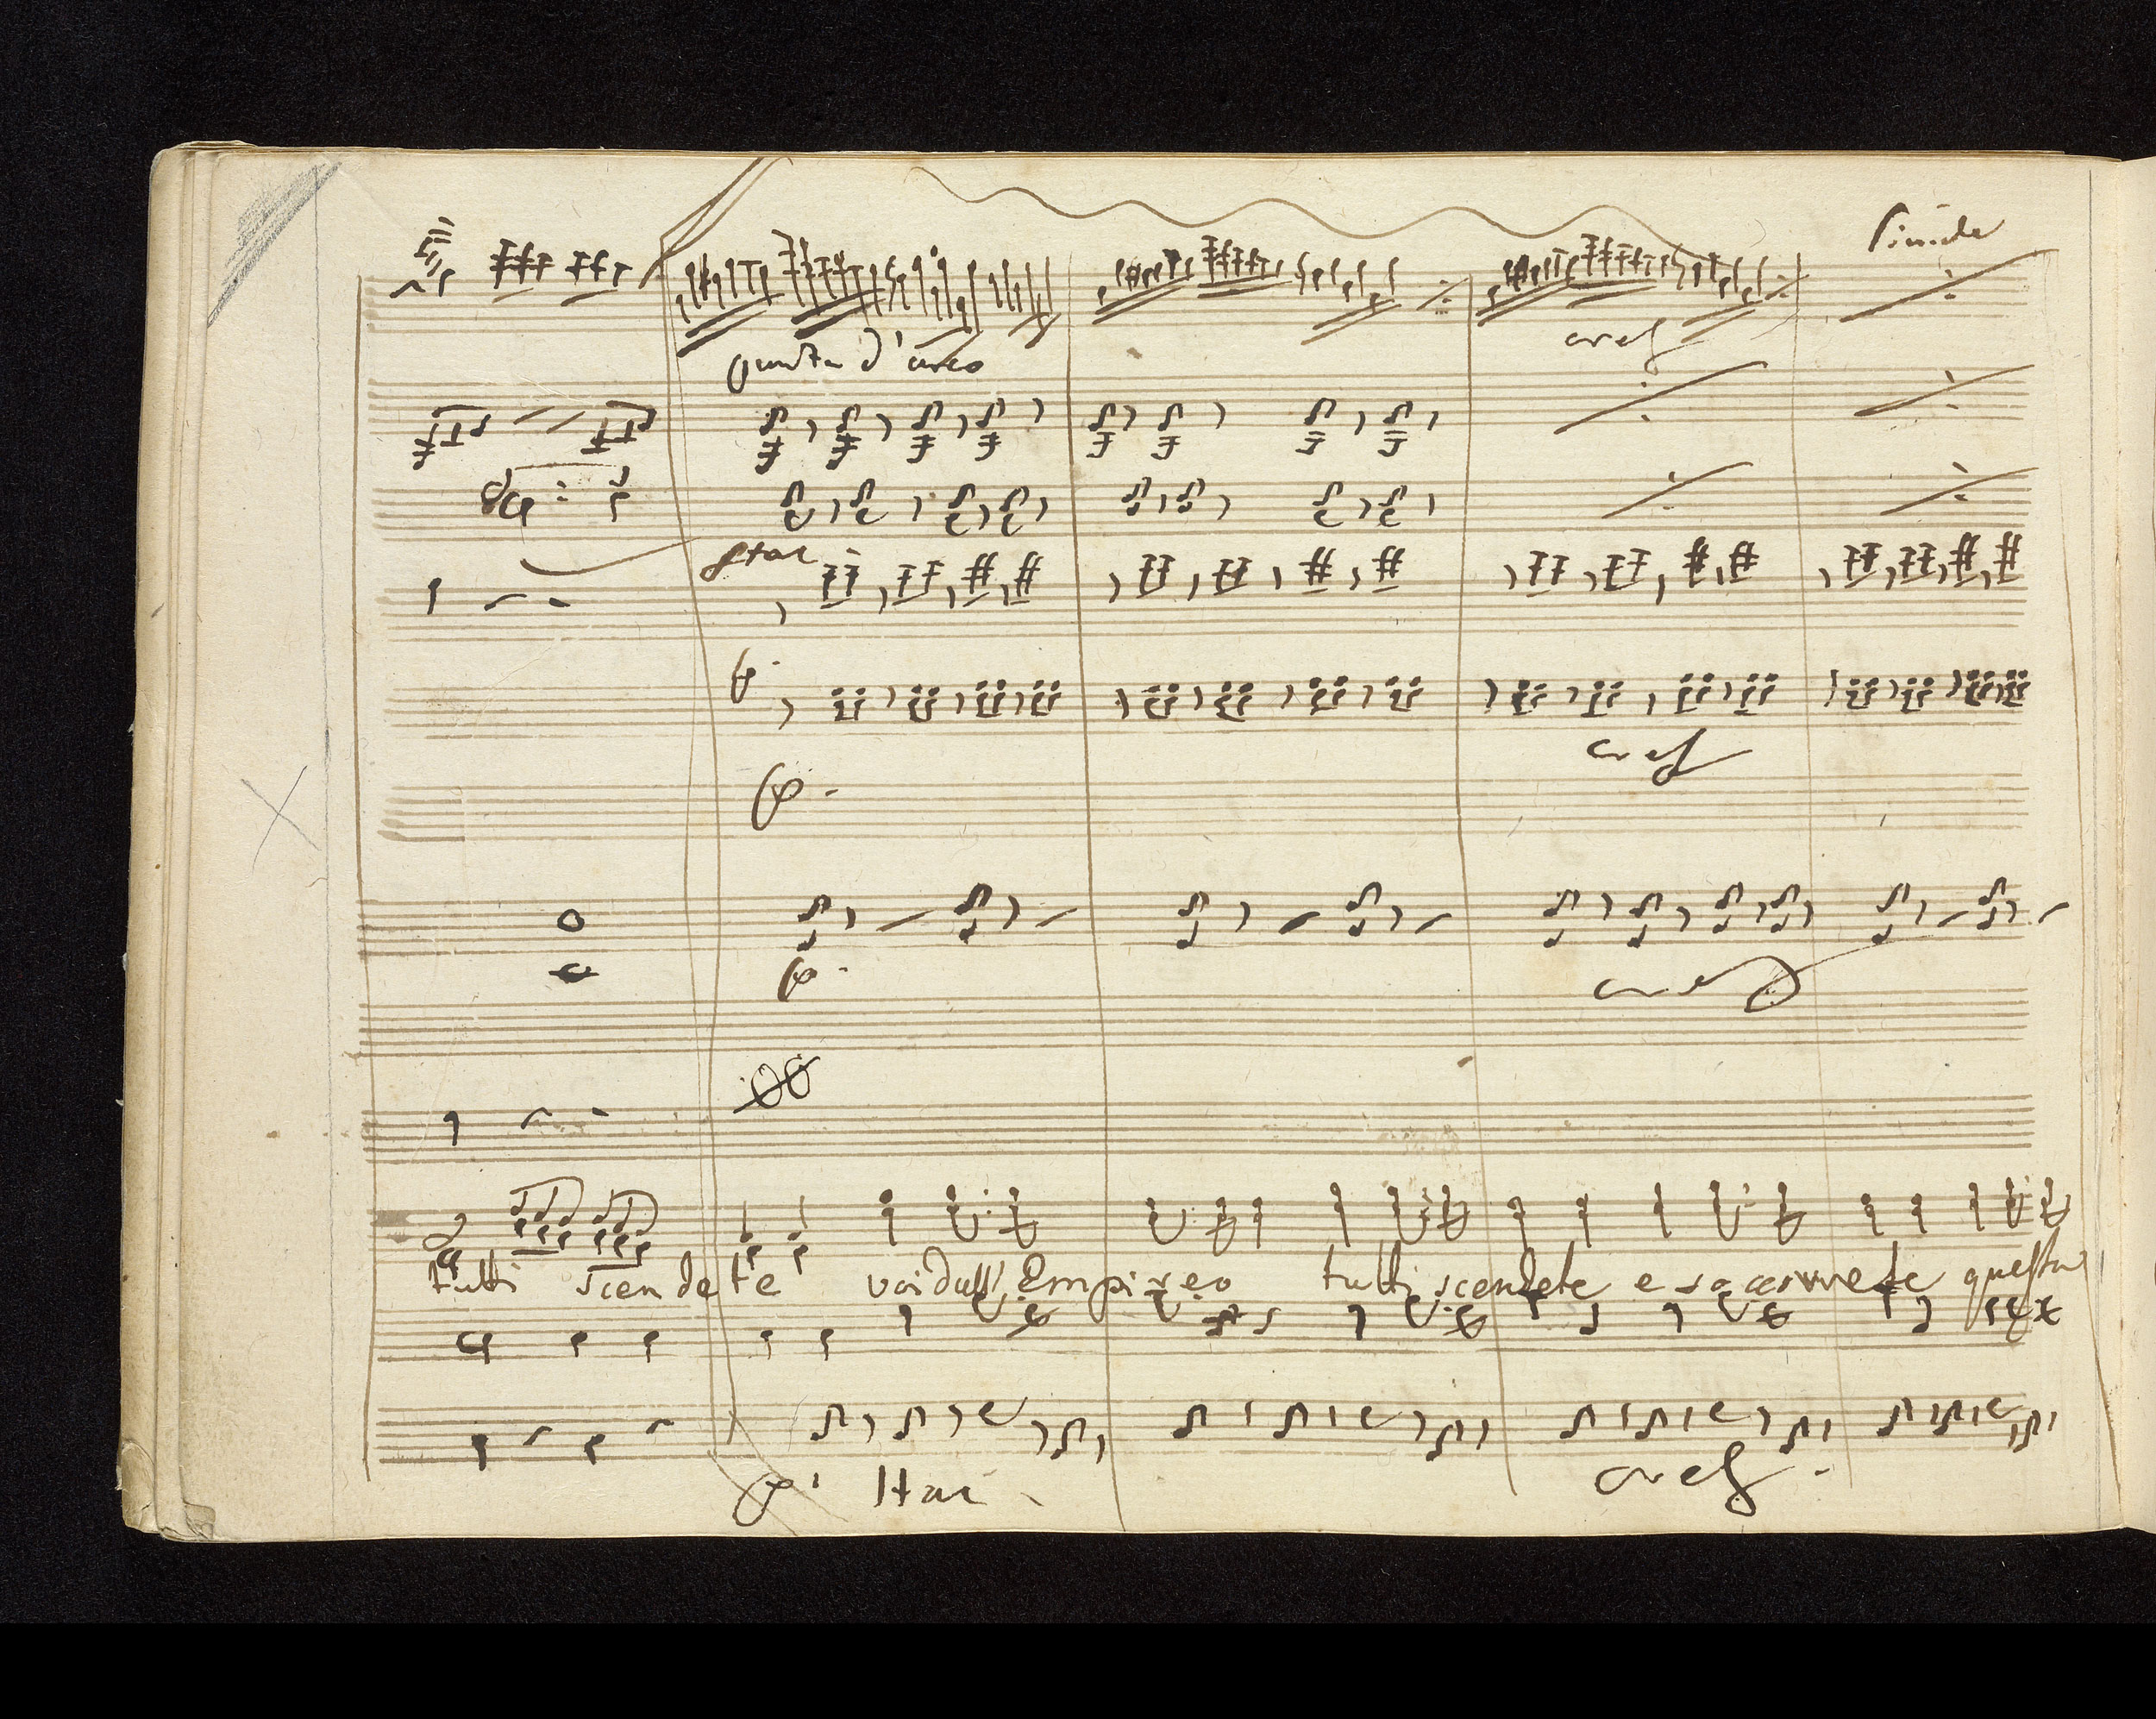 Simile
cresc
punta d'arco
Stac
p.
cresc
p.
p.
cresc
tutti scendete voi dall'Empireo tutti scendete e
p. Stac.
cresc.